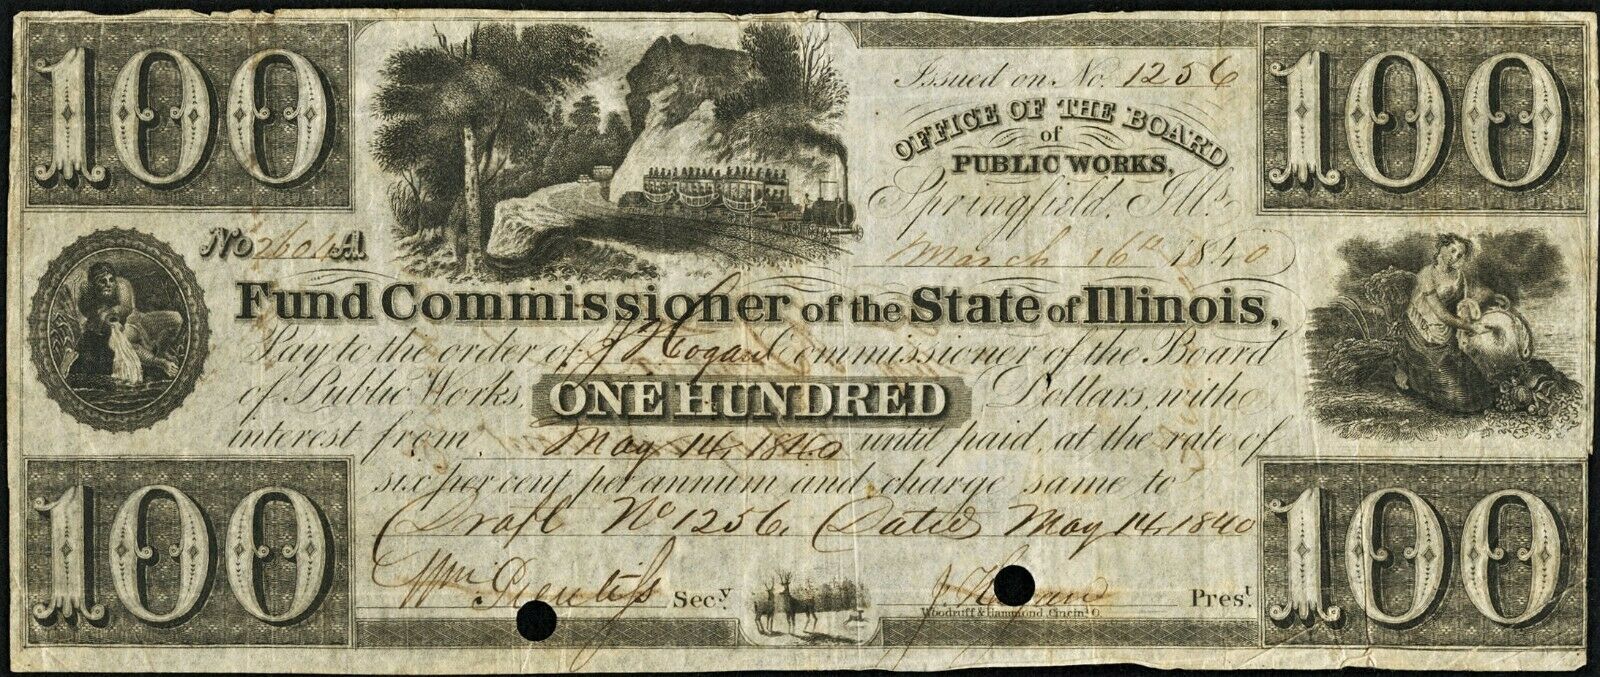 100
100
Issued on No. 1256
OFFICE OF THE BOARD
of
PUBLIC WORKS,
Springfield, Ills.
No 2604 A
March 16th 1840
Fund Commissioner of the State of Illinois,
Pay to the order of J Hogan Commissioner of the Board
of Public Works ONE HUNDRED Dollars, with
interest from May 14, 1840 until paid, at the rate of
six per cent per annum and charge same to
Draft No 1256. Dated May 14, 1840
Wm Prentiss Secy. J Hogan Prest.
Woodruff & Hammond, Cincin. O.
100
100